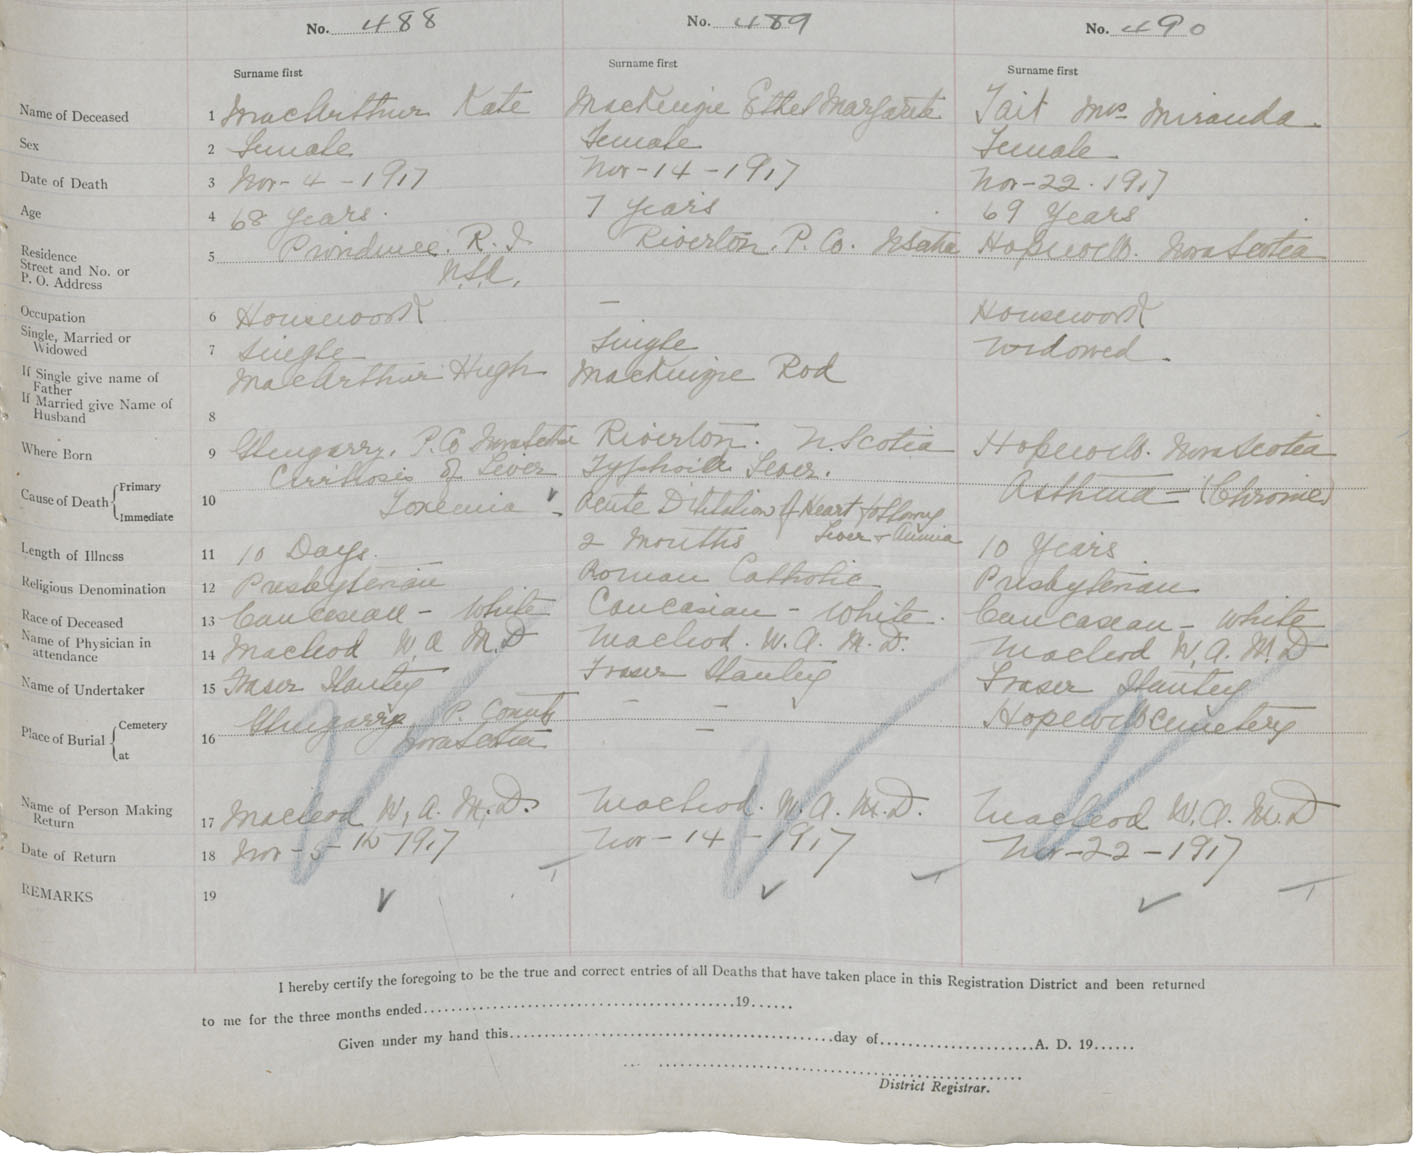 No. 488 No. 489 No. 490
Surname first Surname first Surname first
Name of Deceased 1 MacArthur Kate MacKenzie Ethel Margarite Tait Mrs Miranda
Sex 2 Female Female Female
Date of Death 3 Nov-4-1917 Nov-14-1917 Nov-22.1917
Age 4 68 Years. 7 Years 69 Years
Residence
Street and No. or
P. O. Address 5 Providence. R. I. Riverton. P. Co. Hopewell. Nova Scotia
Occupation 6 Housework — Housework
Single, Married or
Widowed 7 Single Single Widowed.
If Single give name of
Father MacArthur Hugh MacKenzie Rod
If Married give Name of
Husband 8
Where Born 9 Glengarry. P. Co Nova Scotia Riverton. N. Scotia Hopewell. Nova Scotia
Cause of Death { Primary Cirrhosis of Liver Typhoid Fever. Asthma — (Chronic)
Immediate 10 Toxemia Acute Dilitation of Heart following
Fever +
Length of Illness 11 10 Days. 2 Months 10 Years
Religious Denomination 12 Presbyterian Roman Catholic Presbyterian
Race of Deceased 13 Caucasean - White Caucasian - White. Caucasean - White
Name of Physician in
attendance 14 Macleod W. A. M.D Macleod. W. A. M. D. Macleod W. A. M. D
Name of Undertaker 15 Fraser Stanley Fraser Stanley Fraser Stanley
Place of Burial { Cemetery Glengarry P. County — — Hopewell Cemetery
at 16 Nova Scotia —
Name of Person Making
Return 17 Macleod W. A. M. D. Macleod. W. A. M. D. Macleod W. A. M. D
Date of Return 18 Nov-5-th 1917 Nov-14-1917 Nov-22-1917
REMARKS 19
I hereby certify the foregoing to be the true and correct entries of all Deaths that have taken place in this Registration District and been returned
to me for the three months ended..........19......
Given under my hand this..........day of..........A. D. 19......
District Registrar.